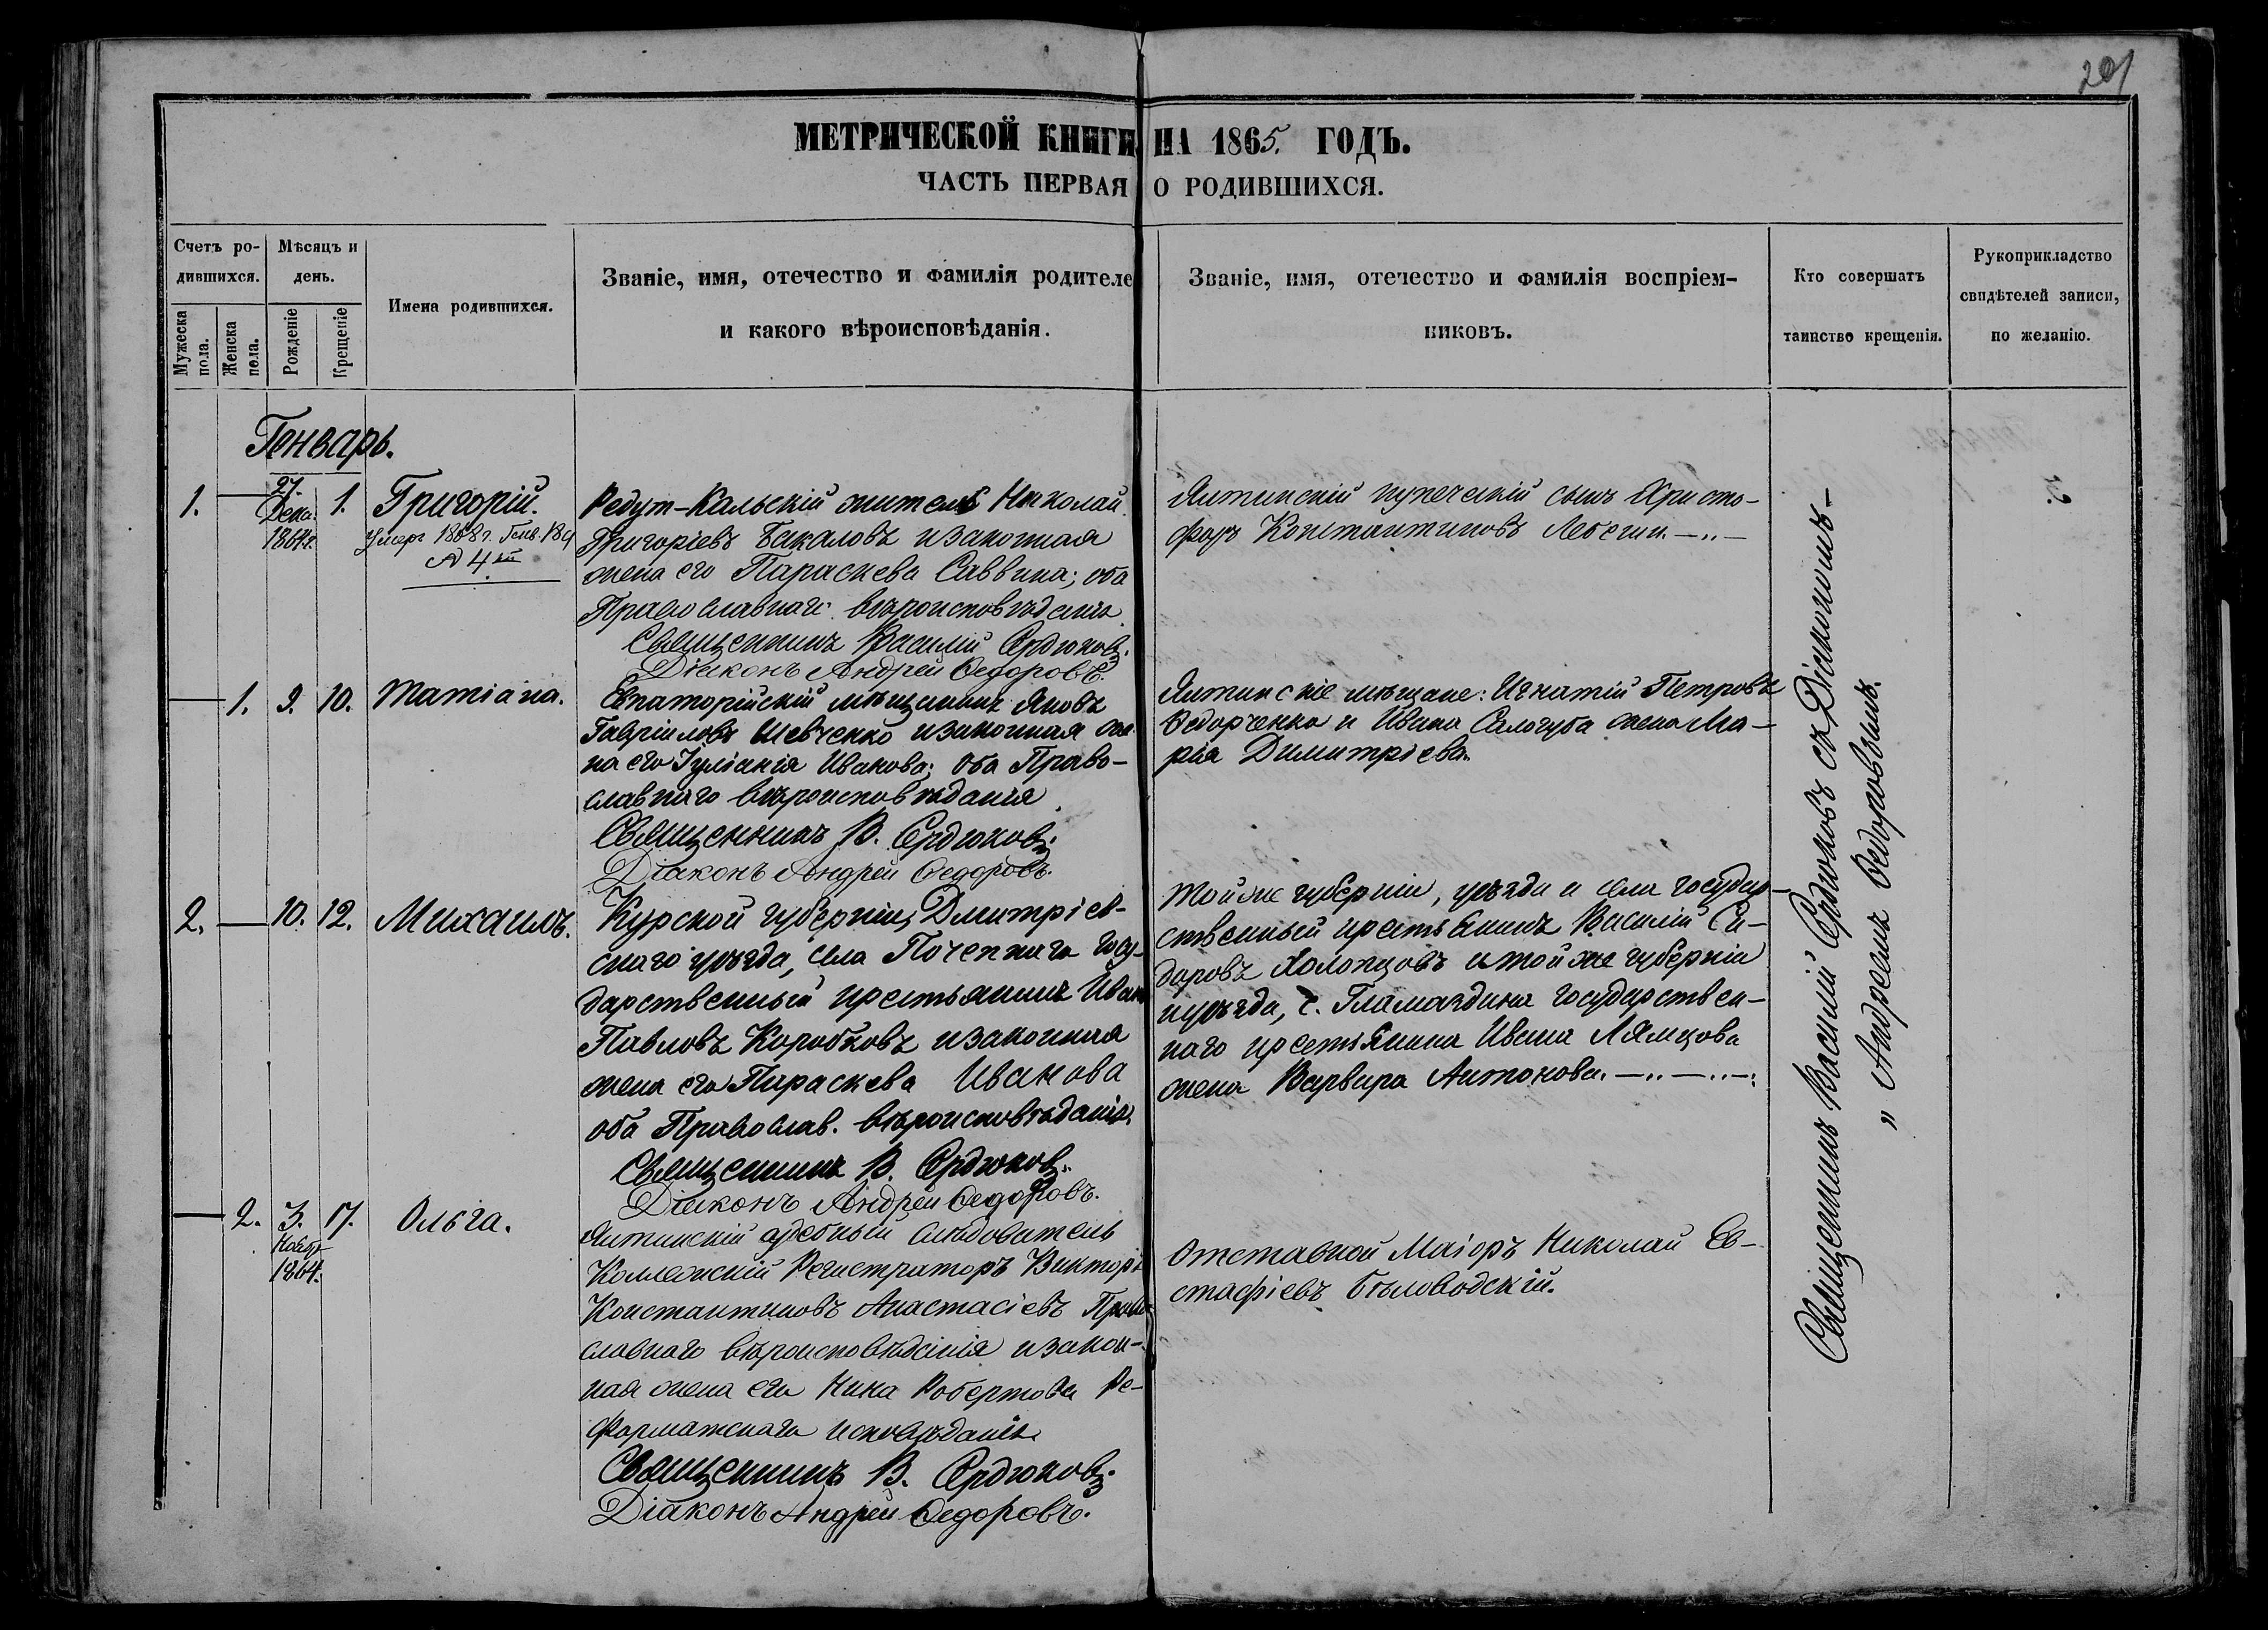 201
МЕТРИЧЕСКОЙ КНИГИ НА 1865. ГОДЪ.
ЧАСТЬ ПЕРВАЯ О РОДИВШИХСЯ.
Счетъ ро-
дившихся.
Мужеска
пола.
Женска
пола.
Мѣсяцъ и
день.
Рожденіе
Крещеніе
Имена родившихся.
Званіе, имя, отечество и фамилія родителе
и какого вѣроисповѣданія.
Званіе, имя, отечество и фамилія воспріем-
никовъ.
Кто совершатъ
таинство крещенія.
Рукоприкладство
свидѣтелей записи,
по желанію.
Генварь.
1.
27.
Дека.
1864г.
1.
Григорій.
Умеръ 1868г. Генв.
Редут-Кальскій житель Николай
Григоріевъ Бакаловъ изаконная
жена его Параскева Саввина; оба
Православнаго вѣроисповѣданія.
Священникъ Василій Сердюковъ.
Діаконъ Андрей Ѳедоровъ.
Ялтинскій купеческій сынъ Христо-
форъ Константиновъ
1. 9. 10. Татіана.
Евпаторійскій мѣщанинъ Яковъ
Гавріиловъ Шевченко изаконная же
на его Іуліанія Иванова; оба Право-
славнаго вѣроисповѣданія
Священникъ В. Сердюковъ.
Діаконъ Андрей Ѳедоровъ.
Ялтинскіе мѣщане: Игнатій Петровъ
Ѳедорченко и Ивана Салогуба жена Ма-
рія Димитріева.
2. 10. 12. Михаилъ.
Курской губерніи, Дмитріев-
скаго уѣзда, села Почепнаго госу-
дарственный крестьянинъ Иванъ
Павловъ Коробковъ изаконная
жена его Параскева Иванова
оба Православ. вѣроисповѣданія.
Священникъ В. Сердюковъ.
Діаконъ Андрей Ѳедоровъ.
Тойже губерніи, уѣзда и села государ-
ственный крестьянинъ Василій Си-
доровъ Холопцовъ итойже губерніи
иуѣзда, с. Гламаздина государствен-
наго крестьянина Ивана Лямцова
жена Варвара Антонова.
2. 3.
Нояб.
1864.
17. Ольга.
Ялтинскій судебный слѣдователь
Коллежскій Регистраторъ Викторъ
Константиновъ Анастасіевъ Право
славнаго вѣроисповѣданія изакон-
ная жена его Нина Робертова Ре-
форматскаго исповѣданія.
Священникъ В. Сердюковъ.
Діаконъ Андрей Ѳедоровъ.
Отставной Маіоръ Николай Ев-
стафіевъ Бѣловодскій.
Священникъ Василій Сердюковъ съ Діакономъ
" Андреемъ Ѳедоровымъ.